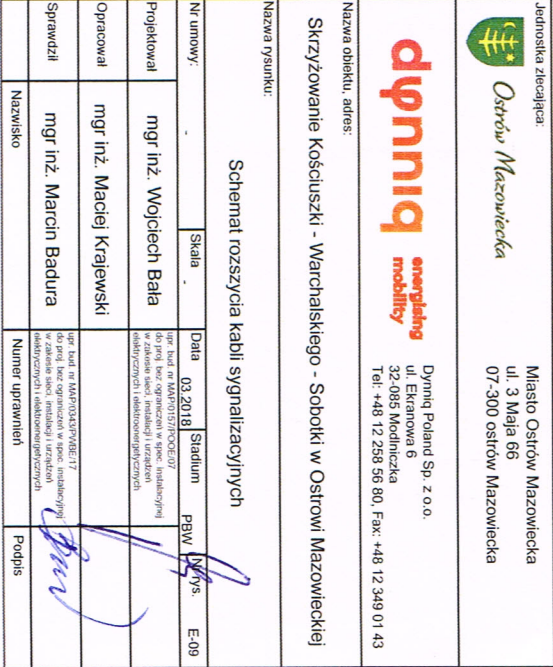 Jednostka zlecająca:
Ostrów Mazowiecka
Miasto Ostrów Mazowiecka
ul. 3 Maja 66
07-300 ostrów Mazowiecka
dynniq energising mobility
Dynniq Poland Sp. z o.o.
ul. Ekranowa 6
32-085 Modlniczka
Tel: +48 12 258 56 80, Fax: +48 12 349 01 43
Nazwa obiektu, adres:
Skrzyżowanie Kościuszki - Warchalskiego - Sobotki w Ostrowi Mazowieckiej
Nazwa rysunku:
Schemat rozszycia kabli sygnalizacyjnych
Nr umowy: - Skala - Data 03.2018 Stadium PBW Nr rys. E-09
Projektował mgr inż. Wojciech Bała
upr. bud. nr MAP/0157/POOE/07
do proj. bez ograniczeń w spec. instalacyjnej
w zakesie sieci, instalacji i urządzeń
elektrycznych i elektroenergetycznych
Opracował mgr inż. Maciej Krajewski
Sprawdził mgr inż. Marcin Badura
upr. bud. nr MAP/0343/PWBE/17
do proj. bez ograniczeń w spec. instalacyjnej
w zakesie sieci, instalacji i urządzeń
elektrycznych i elektroenergetycznych
Nazwisko Numer uprawnień Podpis